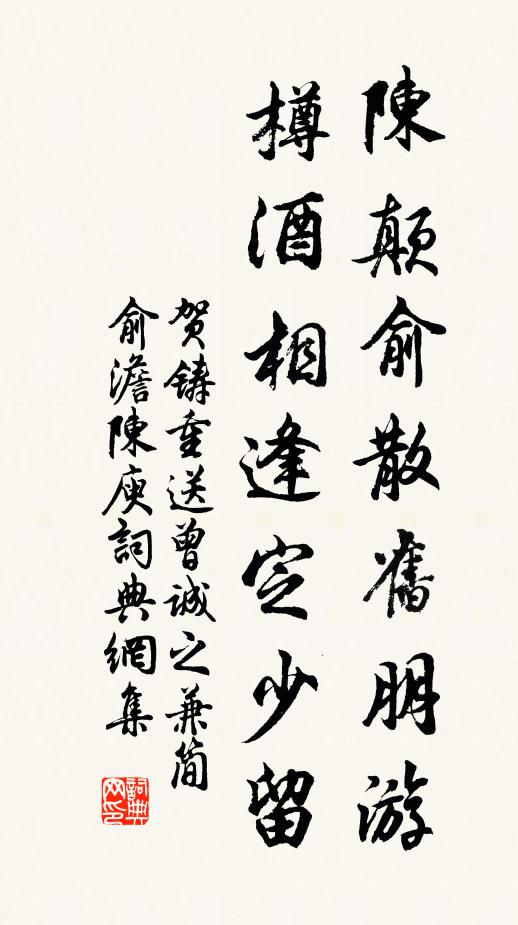 陳顛俞散舊朋游
樽酒相逢定少留
賀鑄重送曾誠之兼簡
俞澹陳庾詞典網集
詞典
网印